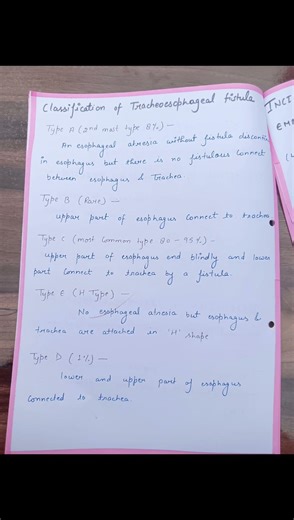 Classification of Tracheoesophageal fistula
Type A (2nd most type 8%) —
An esophageal atresia without fistula disconti
in esophagus but there is no fistulous connect
between esophagus & Trachea.
Type B (Rare) —
upper part of esophagus connect to trachea
Type C (most common type 80 - 95%) -
upper part of esophagus end blindly and lower
part connect to trachea by a fistula.
Type E (H Type) —
No esophageal atresia but esophagus &
trachea are attached in 'H' shape
Type D (1%) —
lower and upper part of esophagus
connected to trachea.
INCI
EM